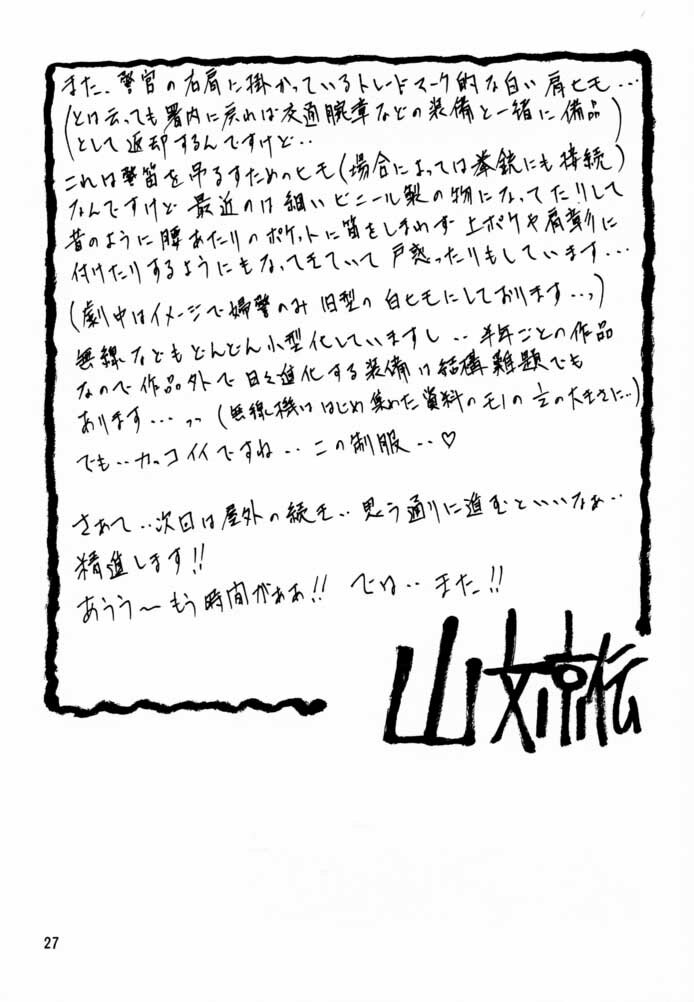 また、警官の右肩に掛かっているトレードマーク的な白い肩ヒモ…
(とは云っても署内に戻れば交通腕章などの装備と一緒に備品
として返却するんですけど‥)
これは警笛を吊るすためのヒモ(場合によっては拳銃にも接続)
なんですけど最近のは細いビニール製の物になってたりして
昔のように腰あたりのポケットに笛をしまわず上ポケや肩章に
付けたりするようにもなってきていて戸惑ったりもしています…
(劇中はイメージで婦警のみ旧型の白ヒモにしております‥っ)
無線などもどんどん小型化していますし‥半年ごとの作品
なので作品外で日々進化する装備は結構難題でも
あります…っっ(無線機ははじめ集めた資料のモノの½の大きさに‥)
でも‥カッコイイですね‥この制服‥♡
さあて‥次回は屋外の続き‥思う通りに進むといいなぁ‥
精進します!!
あううーもう時間がああ!!では‥また!!
山文京伝
27